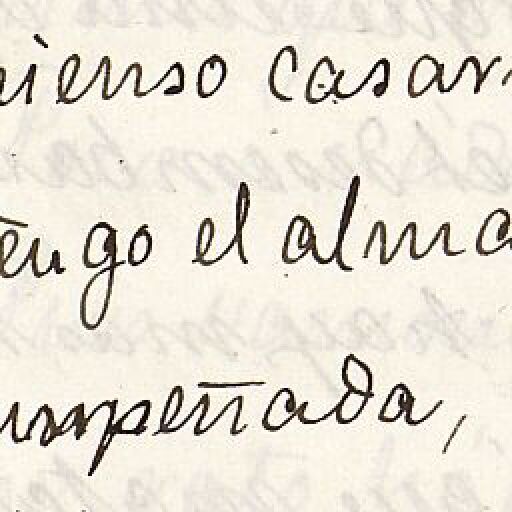 ienso casar
engo el alma
empeñada,